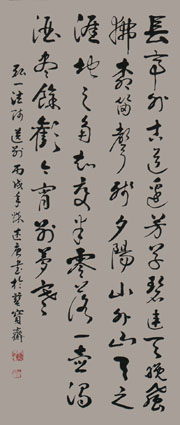 長亭外古道邊芳草碧連天晚風
拂柳笛聲殘夕陽山外山天之
涯地之角知交半零落一壺濁
酒盡餘歡今宵別夢寒
弘一法師送別丙戌年